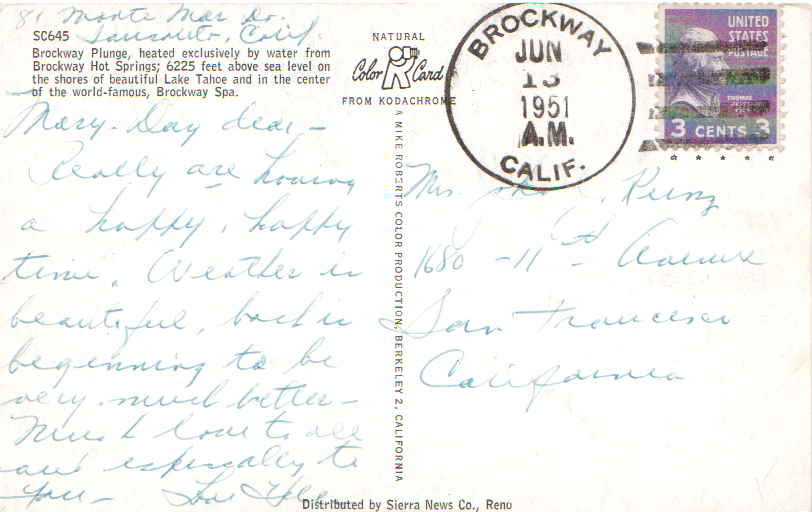 81 Monte Mar Dr.
Sausalito, Calif.
SC645
Brockway Plunge, heated exclusively by water from
Brockway Hot Springs; 6225 feet above sea level on
the shores of beautiful Lake Tahoe and in the center
of the world-famous, Brockway Spa.
NATURAL
Color Card
FROM KODACHROME
BROCKWAY
JUN
13
1951
A.M.
CALIF.
UNITED
STATES
POSTAGE
THOMAS
JEFFERSON
3 CENTS 3
Mary-Day dear -
Really are having
a happy, happy
time. Weather is
beautiful, back is
beginning to be
very much better -
Much love to all
and especially to
you -
A MIKE ROBERTS COLOR PRODUCTION, BERKELEY 2, CALIFORNIA
Mrs. John
1680 - 11th Avenue
San Francisco
California
Distributed by Sierra News Co., Reno